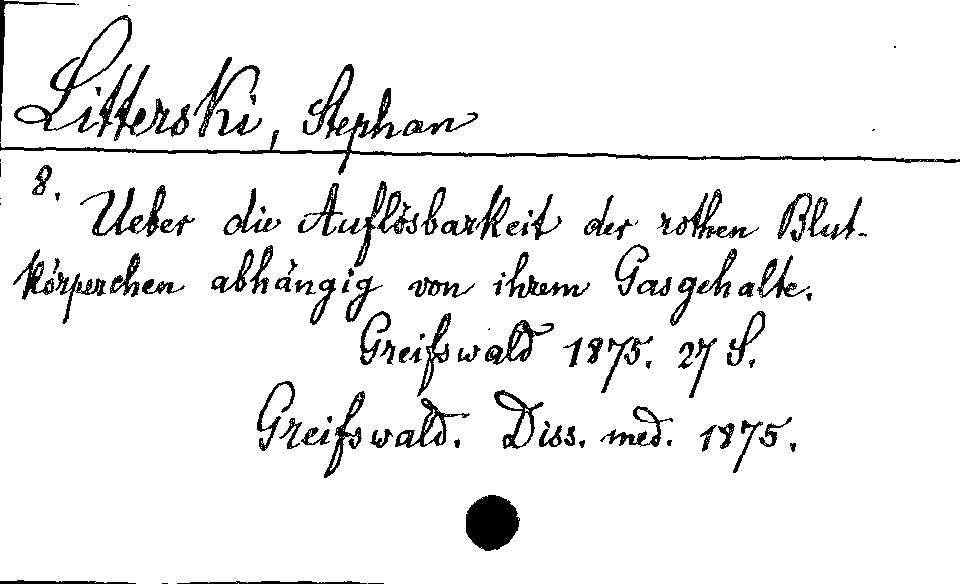 Litterski, Stephan
8.
Ueber die Auflösbarkeit der rothen Blut-
körperchen abhängig von ihrem Gasgehalte.
Greifswald 1875. 27 S.
Greifswald. Diss. med. 1875.